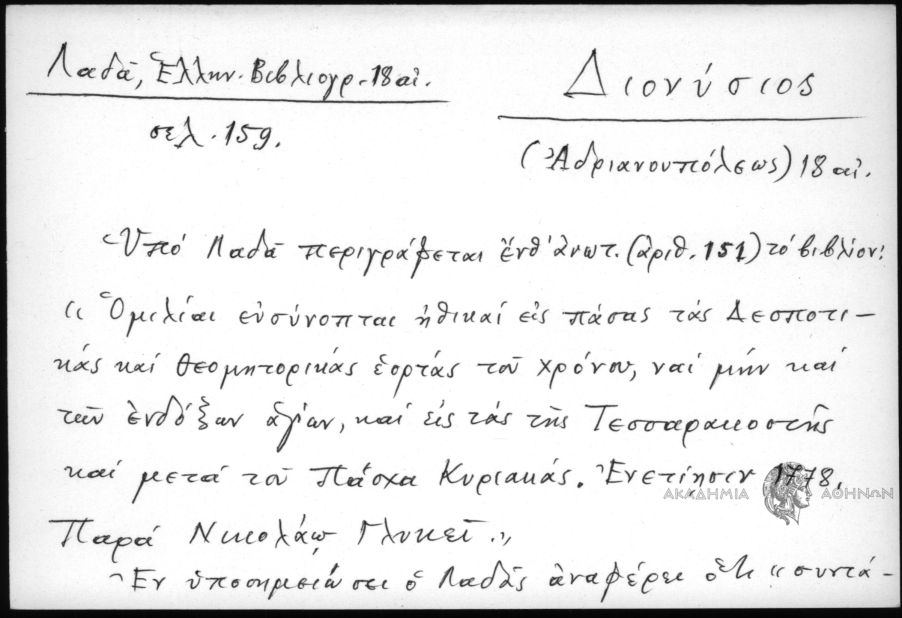 Λαδᾶ, Ἑλλην. Βιβλιογρ. 18 αἰ.
σελ. 159.
Διονύσιος
(Ἀδριανουπόλεως) 18 αἰ.
Ὑπό Λαδᾶ περιγράφεται ἔνθ' ἀνωτ. (ἀριθ. 151) τό βιβλίον:
« Ὁμιλίαι εὐσύνοπται ἠθικαί εἰς πάσας τάς Δεσποτι-
κάς καί θεομητορικάς ἑορτάς τοῦ χρόνου, ναί μήν καί
τῶν ἐνδόξων ἁγίων, καί εἰς τάς τῆς Τεσσαρακοστῆς
καί μετά τοῦ Πάσχα Κυριακάς. Ἐνετίησιν 1778.
ΑΚΑΔΗΜΙΑ ΑΘΗΝΩΝ
Παρά Νικολάῳ Γλυκεῖ.»
Ἐν ὑποσημειώσει ὁ Λαδᾶς ἀναφέρει ὅτι «συντά-